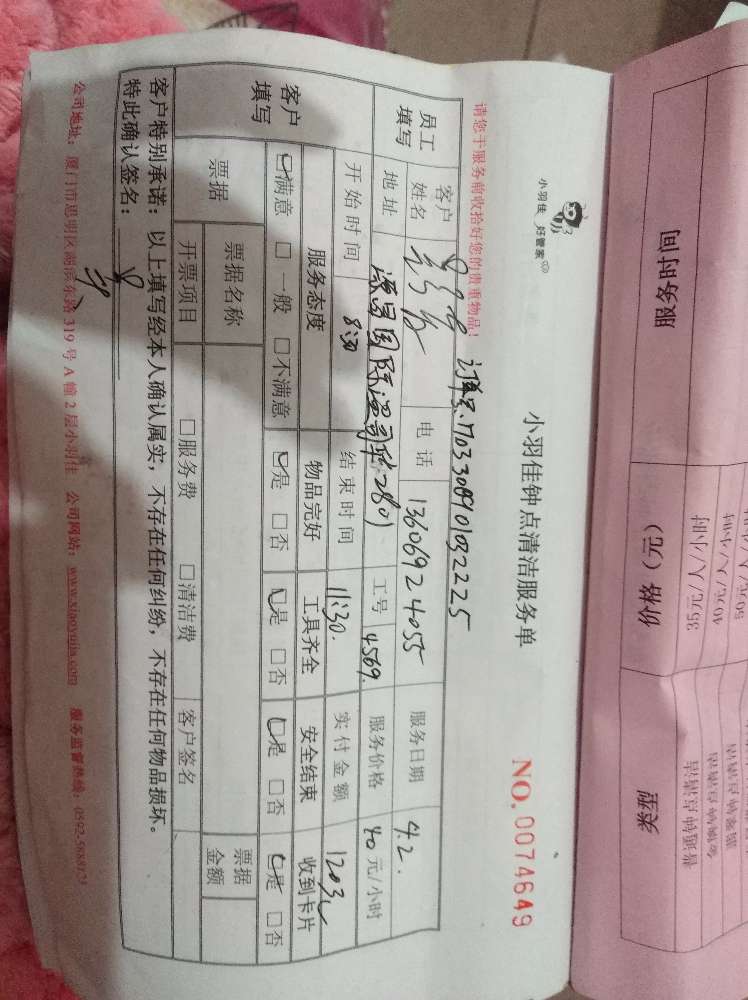 小羽佳 好管家
小羽佳钟点清洁服务单
NO. 0074649
请您于服务前收拾好您的贵重物品!
订单号:1703308901032225
员工填写
客户姓名
电话 13606924055
服务日期 4.2.
地址 源昌国际温哥华2801
工号 4569.
服务价格 40元/小时
开始时间 8:30
结束时间 11:30.
实付金额 120
客户填写
服务态度 物品完好 工具齐全 安全结束 收到卡片
☑满意 □一般 □不满意 ☑是 □否 ☑是 □否 ☑是 □否 ☑是 □否
票据
票据名称
票据金额
开票项目 □服务费 □清洁费 客户签名
客户特别承诺:以上填写经本人确认属实,不存在任何纠纷,不存在任何物品损坏。
特此确认签名:
公司地址:厦门市思明区湖滨东路319号A幢2层小羽佳 公司网站:www.xiaoyujia.com 服务监督热线:
服务时间
价格(元)
类型
35元/人/小时
40元/人/小时